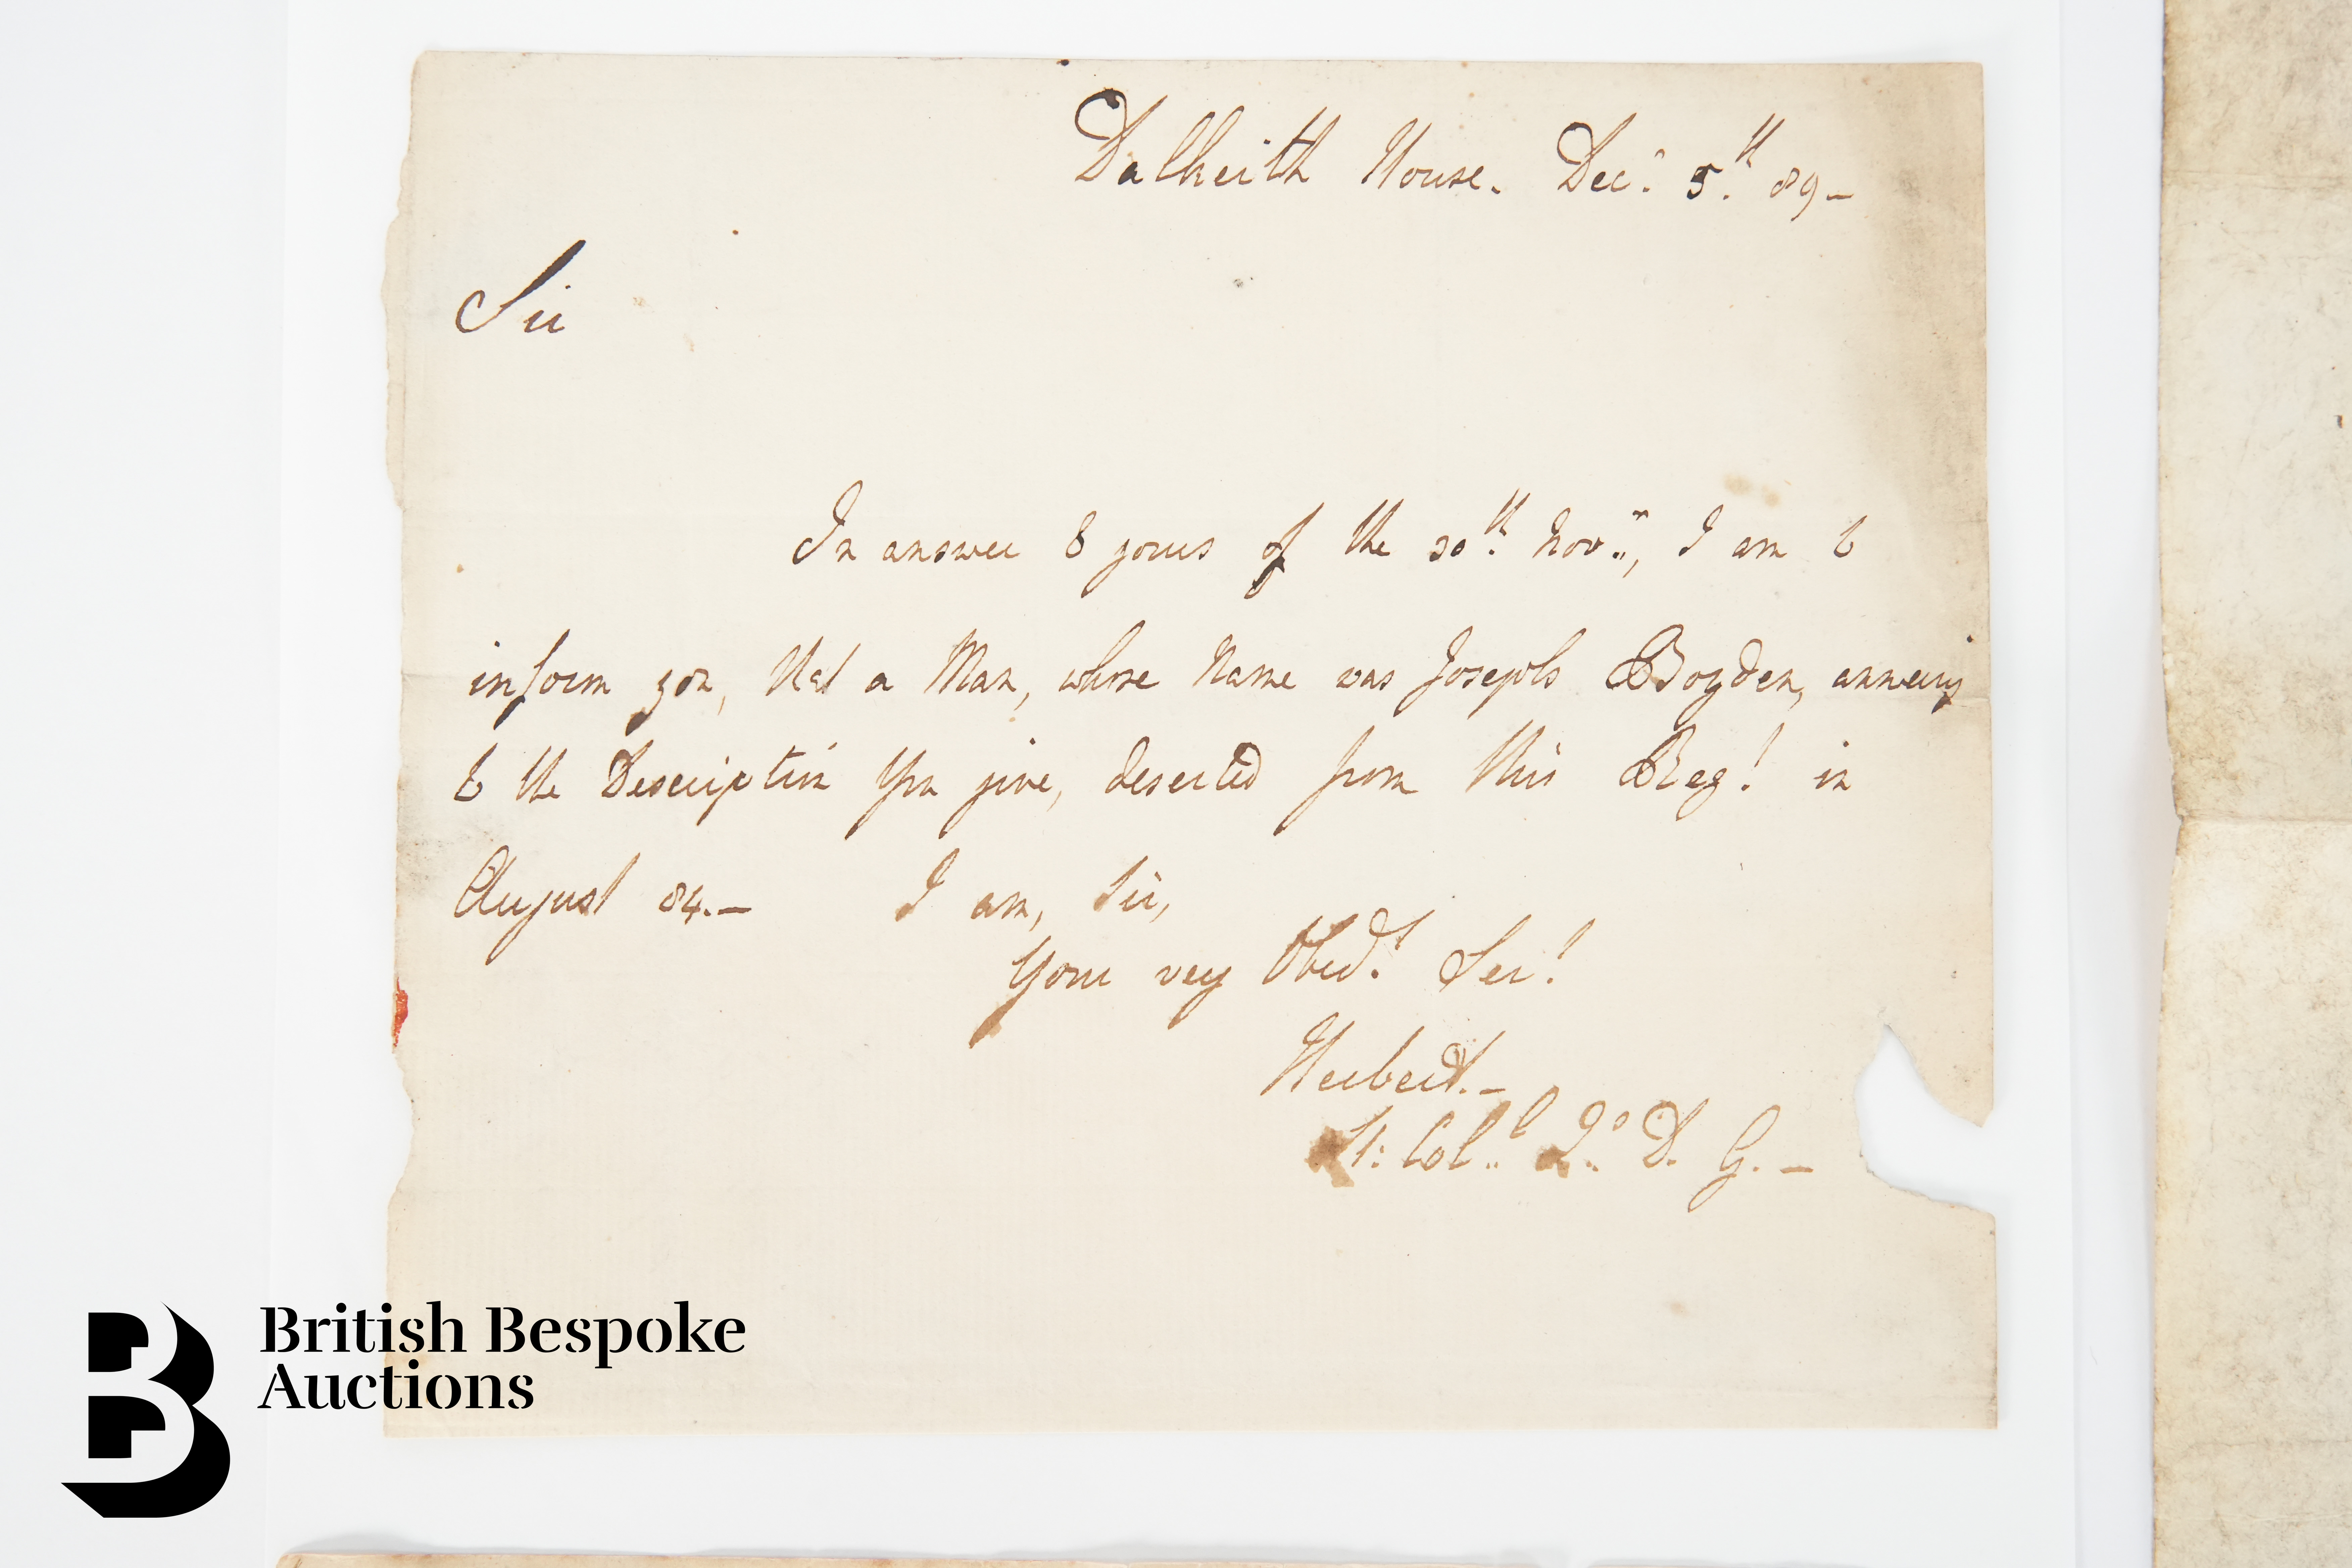 Dalkeith House. Decr. 5th. 89–
Sir
In answer to yours of the 30th. Novr., I am to
inform you, that a Man, whose Name was Joseph Boyden, answering
to the Description you give, deserted from this Regt. in
August 84.– I am, Sir,
Your very Obedt. Sert.
Herbert.–
Lt: Coll. 2d. D. G.–
British Bespoke
Auctions